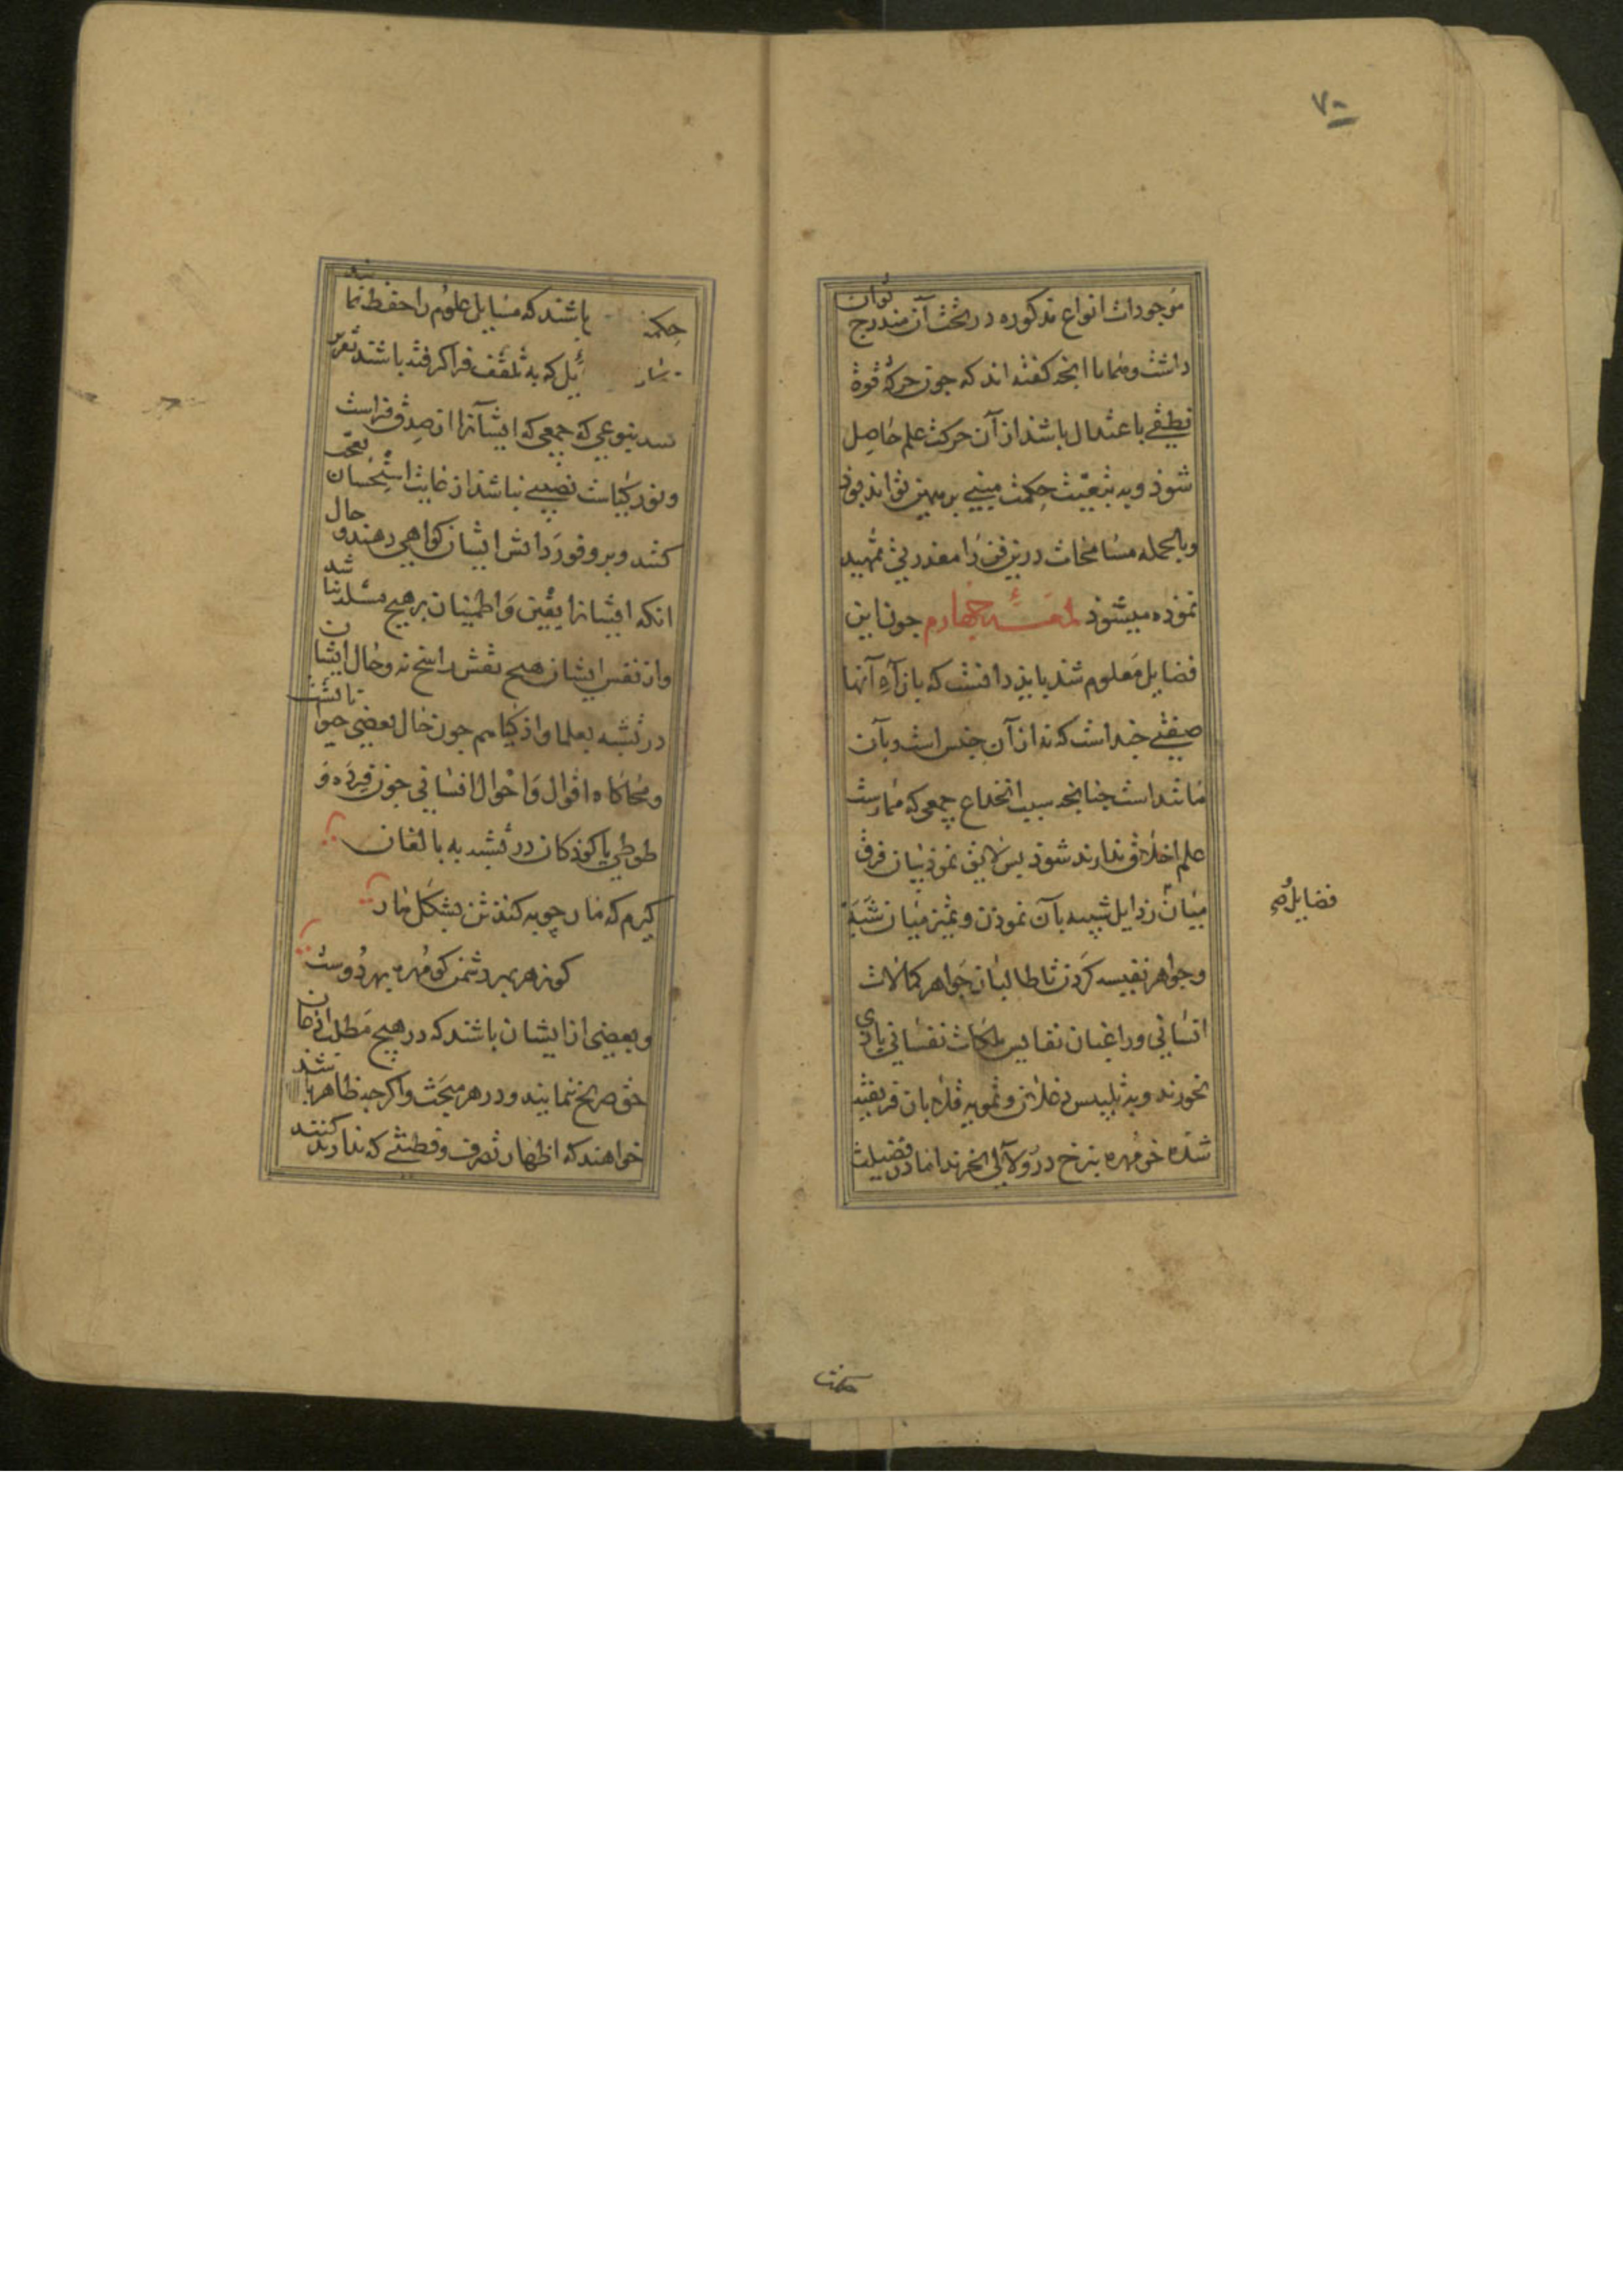 ۷۰
موجودات انواع مذکوره در تحت آن مندرج توان
داشت و منها ما انجه کفته اند که جون حرکة قوة
نطقی باعتدال باشد از آن حرکت علم حاصل
شود و به تبعیت حکمت مبنی برین تواند بود
و بالجمله مسامحات درین فن را معذرتی تمهید
نموده میشود لمعــهٔ چهارم جون این
فضایل معلوم شد باید دانست که بازاء آنها
صفتی جند است که نه از آن جنس است و بآن
مانند است جنانجه سبب انخداع جمعی که ممارست
علم اخلاق ندارند شود بس لایق نمود بیان فرق
میان رذایل شبیه بآن نمودن و تمیز میان شَبَه
و جواهر نفیسه کردن تا طالبان جواهر کمالات
انسانی و راغبان نفایس ملکات نفسانی بازی
نخورند و به تلبیس دغلان و تمویه قلابان فریفته
شده خرمهره بنرخ در و لآلی نخرند اما در فضیلت
فضایل
حکمت
حکمة باشند که مسایل علوم را حفظ نمایند
یل که به تلقف فرا کرفته باشند تقریر
بنوعی که جمعی که ایشانرا از صدق فراست
و نور کیاست نصیبی نباشد از غایت استحسان تعجب
کنند و بر وفور دانش ایشان کواهی دهند و حال
انکه ایشانرا یقین و اطمینان بر هیچ مسله نباشد
و از نفس ایشان هیچ نقش راسخ نه و حال ایشان
در تشبه بعلما و اذکیا هم جون حال بعضی حیوانات
و محاکاه اقوال و احوال انسانی جون قرده و
طوطی یا کودکان در تشبه به بالغان
کیرم که مار چوبه کند تن بشکل مار
کو زهر بهر دشمن کو مهره بهر دوست
و بعضی از ایشان باشند که در هیچ مطلب اذعان
حق صریح ننمایند و در هر مبحث و اکرچه ظاهر باشد
خواهند که اظهار تصرف و فطنتی که ندارند کنند